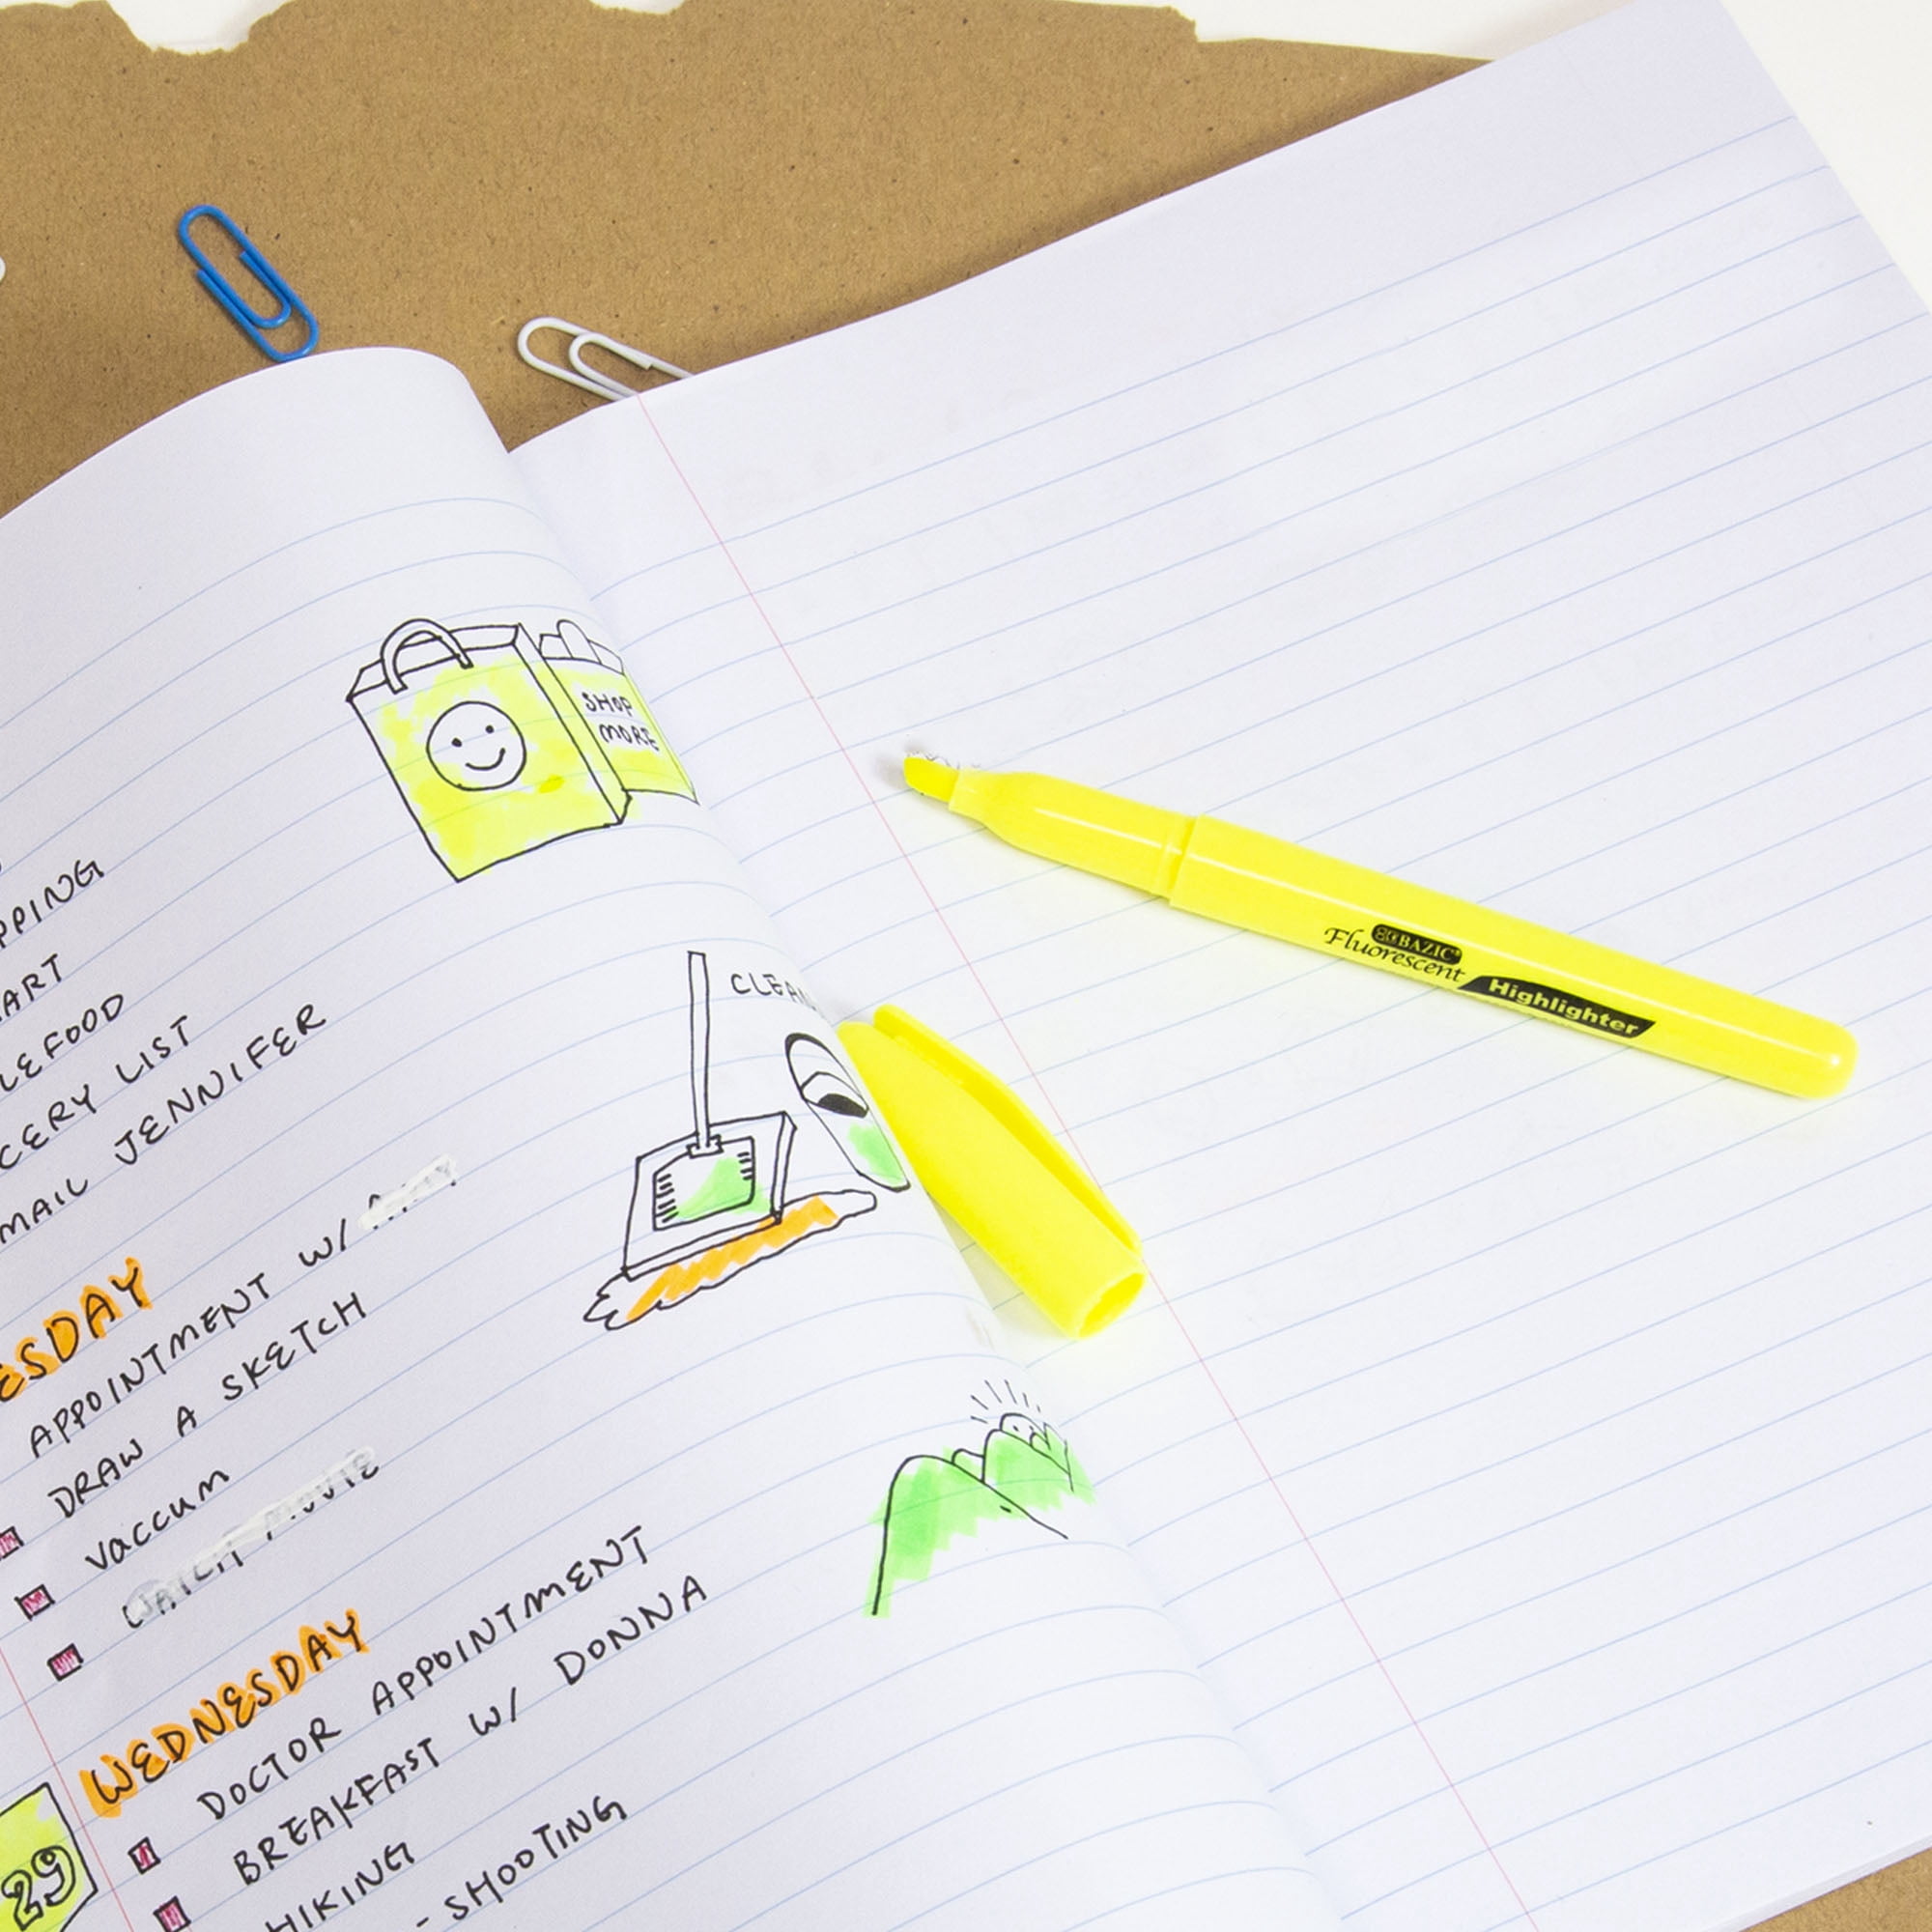 SHOP
MORE
PPING
ART
LEFOOD
CERY LIST
MAIL JENNIFER
CLEAN
ESDAY
APPOINTMENT W/
DRAW A SKETCH
VACCUM
CATCH MOVIE
WEDNESDAY
DOCTOR APPOINTMENT
BREAKFAST W/ DONNA
HIKING
- SHOOTING
29
BAZIC
Fluorescent
Highlighter